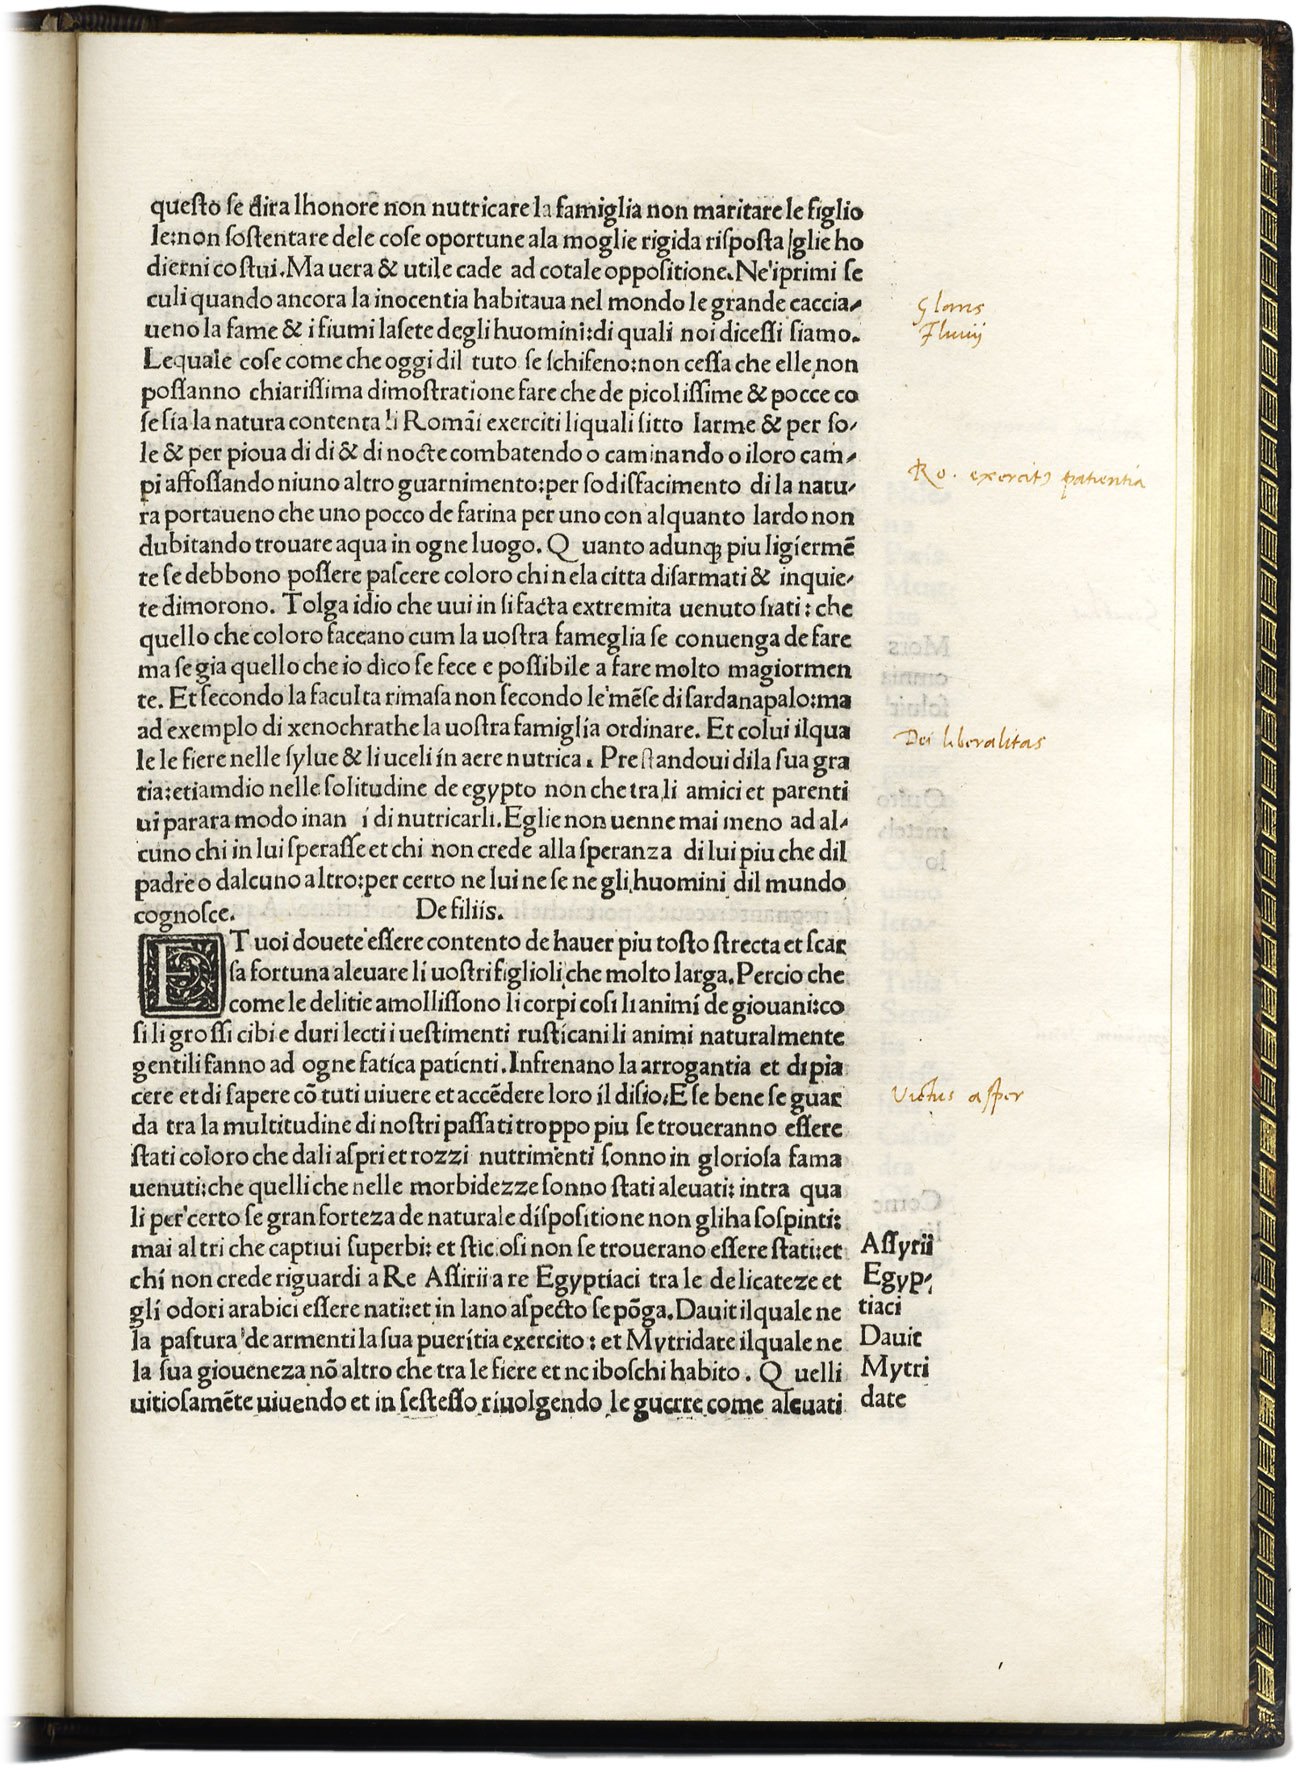 questo se dira lhonore non nutricare la famiglia non maritare le figlio
le:non sostentare dele cose oportune ala moglie rigida risposta|glie ho
dierni costui.Ma uera & utile cade ad cotale oppositione.Ne'iprimi se
culi quando ancora la inocentia habitaua nel mondo le grande caccia-
Glans
ueno la fame & i fiumi lasete degli huomini:di quali noi dicessi siamo.
Fluuij
Lequale cose come che oggi dil tuto se schifeno:non cessa che elle non
possanno chiarissima dimostratione fare che de picolissime & pocce co
se sia la natura contenta li Romãi exerciti liquali sitto larme & per so-
le & per pioua di di & di nocte combatendo o caminando o iloro cam-
Ro. exercitꝰ patientia
pi affossando niuno altro guarnimento:per sodisfacimento di la natu-
ra portaueno che uno pocco de farina per uno con alquanto lardo non
dubitando trouare aqua in ogne luogo. Q uanto adunq; piu ligiermẽ
te se debbono possere pascere coloro chi nela citta disarmati & inquie-
te dimorono. Tolga idio che uui in si facta extremita uenuto siati : che
quello che coloro faceano cum la uostra fameglia se conuenga de fare
ma se gia quello che io dico se fece e possibile a fare molto magiormen
te. Et secondo la faculta rimasa non secondo le'mẽse di sardanapalo:ma
ad exemplo di xenochrathe la uostra famiglia ordinare. Et colui ilqua
Dei liberalitas
le le fiere nelle sylue & li uceli in aere nutrica. Prestandoui dila sua gra
tia:etiamdio nelle solitudine de egypto non che tra li amici et parenti
ui parara modo inan i di nutricarli.Eglie non uenne mai meno ad al-
cuno chi in lui sperasse et chi non crede alla speranza di lui piu che dil
padre o dalcuno altro:per certo ne lui ne se ne gli huomini dil mundo
cognosce. De filiis.
ET uoi douete essere contento de hauer piu tosto strecta et scar
sa fortuna aleuare li uostri figlioli che molto larga.Percio che
come le delitie amollissono li corpi cosi li animi de giouani:co
si li grossi cibi e duri lecti i uestimenti rusticani li animi naturalmente
gentili fanno ad ogne fatica patienti.Infrenano la arrogantia et di pia
cere et di sapere cõ tuti uiuere et accẽdere loro il disio.E se bene se guar
Victus asper
da tra la multitudine di nostri passati troppo piu se troueranno essere
stati coloro che dali aspri et rozzi nutrimenti sonno in gloriosa fama
uenuti:che quelli che nelle morbidezze sonno stati aleuati: intra qua
li per certo se gran forteza de naturale dispositione non gliha sospinti:
mai altri che captiui superbi: et stic osi non se trouerano essere stati:et
Assyrii
chi non crede riguardi a Re Assirii a re Egyptiaci tra le delicateze et
Egyp-
gli odori arabici essere nati:et in lano aspecto se põga.Dauit ilquale ne
tiaci
la pastura de armenti la sua pueritia exercito : et Mytridate ilquale ne
Dauit
la sua gioueneza nõ altro che tra le fiere et ne iboschi habito . Q uelli
Mytri
uitiosamẽte uiuendo et in sestesso riuolgendo le guerre come aleuati
date